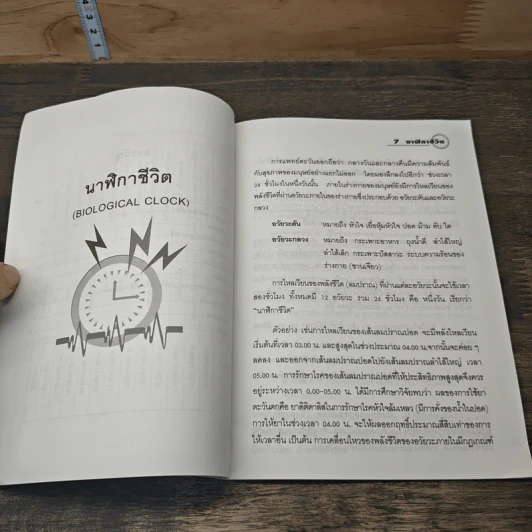 นาฬิกาชีวิต
(BIOLOGICAL CLOCK)
7 นาฬิกาชีวิต
การแพทย์ตะวันออกถือว่า กลางวันและกลางคืนมีความสัมพันธ์
กับสุขภาพของมนุษย์อย่างแยกไม่ออก โดยมองลึกลงไปอีกว่า ช่วงเวลา
24 ชั่วโมงในหนึ่งวันนั้น ภายในร่างกายของมนุษย์ยังมีการไหลเวียนของ
พลังชีวิตที่ผ่านอวัยวะภายในของร่างกายซึ่งประกอบด้วย อวัยวะตันและอวัยวะ
กลวง
อวัยวะตัน หมายถึง หัวใจ เยื่อหุ้มหัวใจ ปอด ม้าม ตับ ไต
อวัยวะกลวง หมายถึง กระเพาะอาหาร ถุงน้ำดี ลำไส้ใหญ่
ลำไส้เล็ก กระเพาะปัสสาวะ ระบบความร้อนของ
ร่างกาย (ซานเจียว)
การไหลเวียนของพลังชีวิต (ลมปราณ) ที่ผ่านแต่ละอวัยวะนั้นจะใช้เวลา
สองชั่วโมง ทั้งหมดมี 12 อวัยวะ รวม 24 ชั่วโมง คือ หนึ่งวัน เรียกว่า
"นาฬิกาชีวิต"
ตัวอย่าง เช่นการไหลเวียนของเส้นลมปราณปอด จะมีพลังไหลเวียน
เริ่มต้นที่เวลา 03.00 น. และสูงสุดในช่วงประมาณ 04.00 น.จากนั้นจะค่อย ๆ
ลดลง และออกจากเส้นลมปราณปอดไปยังเส้นลมปราณลำไส้ใหญ่ เวลา
05.00 น. การรักษาโรคของเส้นลมปราณปอดที่ให้ประสิทธิภาพสูงสุดจึงควร
อยู่ระหว่างเวลา 0.00-05.00 น. ได้มีการศึกษาวิจัยพบว่า ผลของการใช้ยา
ตะวันตกคือ ยาดิติตาลิสในการรักษาโรคหัวใจล้มเหลว (มีการคั่งของน้ำในปอด)
การให้ยาในช่วงเวลา 04.00 น. จะให้ผลออกฤทธิ์ประมาณสี่สิบเท่าของการ
ให้เวลาอื่น เป็นต้น การเคลื่อนไหวของพลังชีวิตของอวัยวะภายในมีกฎเกณฑ์
4 3 2 1